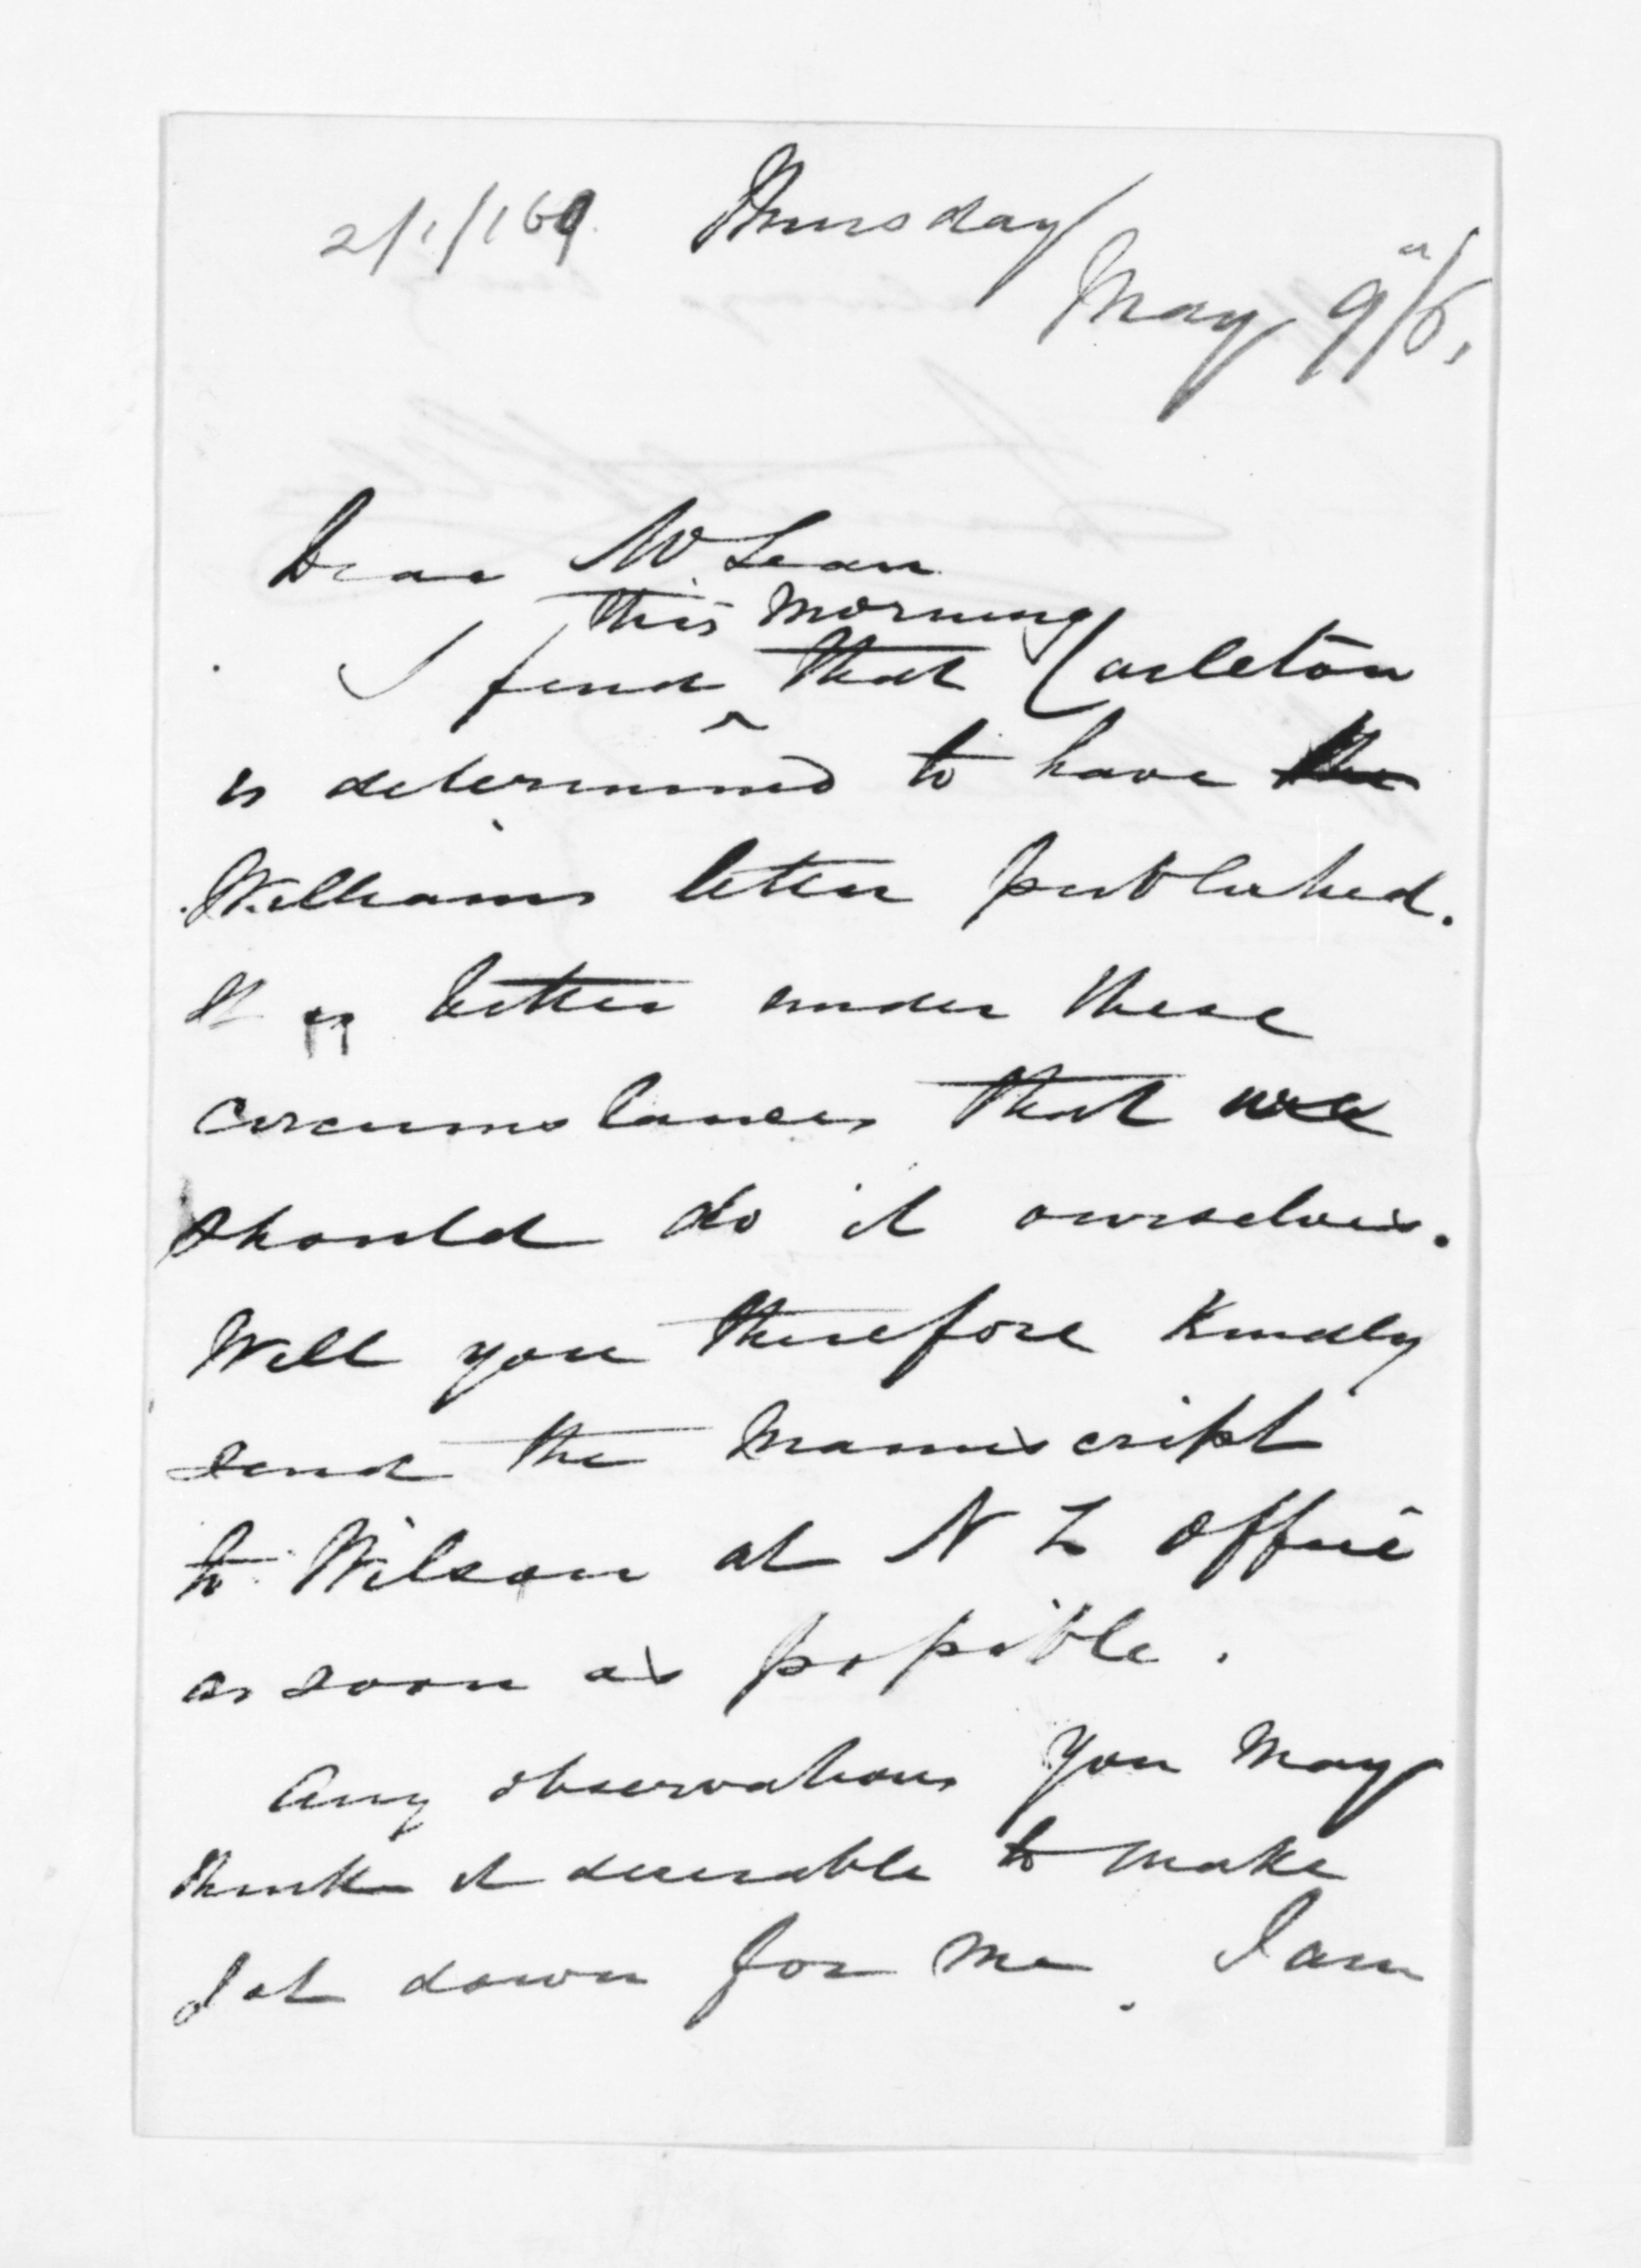 2/1/169. Thursday
May 9th/61
Dear McLean
this morning
I find that Carleton
is determined to have the
Williams letter published.
It is better under these
circumstances that we
should do it ourselves.
Will you therefore Kindly
send the Manuscript
to Wilson at N Z office
as soon as possible.
Any observations you may
think it desirable to make
Jot down for me. I am